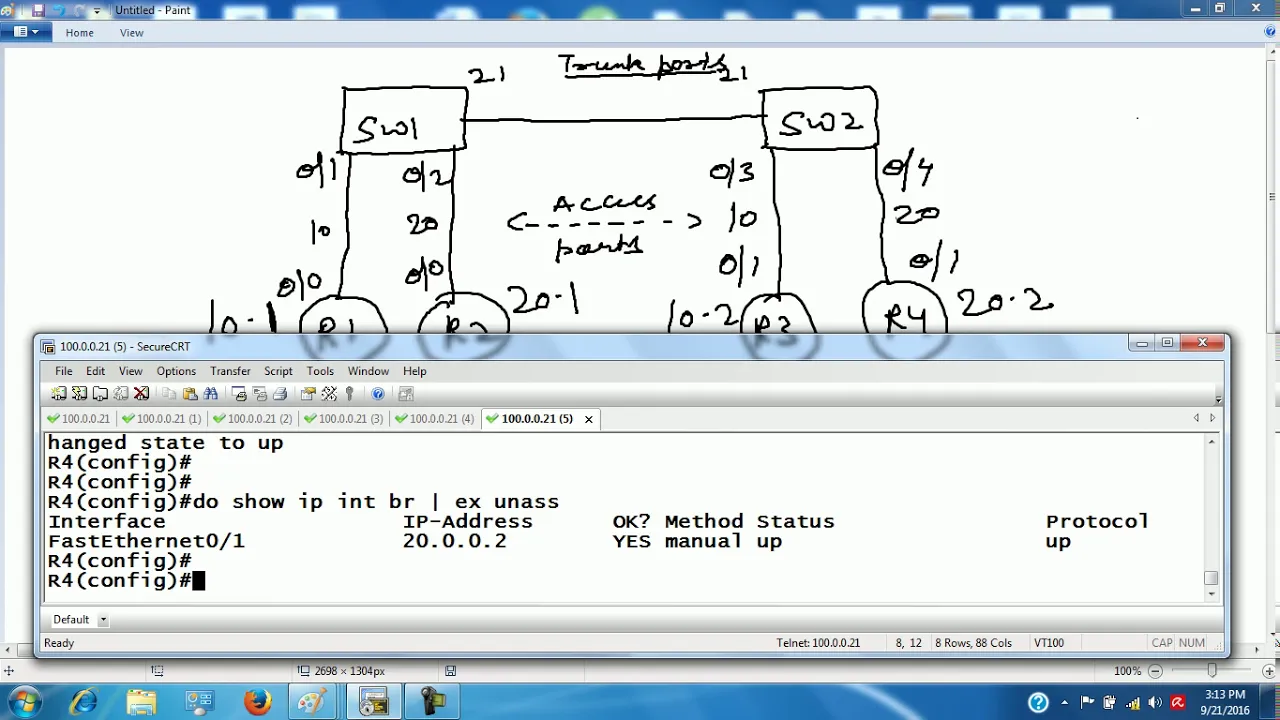 Untitled - Paint
Home View
Trunk ports
21 21
SW1 SW2
0/1 0/2 0/3 0/4
Acces
10 20 10 20
ports
0/0 0/0 0/1 0/1
10.1 R1 R2 20.1 10.2 R3 R4 20.2
100.0.0.21 (5) - SecureCRT
File Edit View Options Transfer Script Tools Window Help
100.0.0.21 100.0.0.21 (1) 100.0.0.21 (2) 100.0.0.21 (3) 100.0.0.21 (4) 100.0.0.21 (5)
hanged state to up
R4(config)#
R4(config)#
R4(config)#do show ip int br | ex unass
Interface IP-Address OK? Method Status Protocol
FastEthernet0/1 20.0.0.2 YES manual up up
R4(config)#
R4(config)#
Default
Ready Telnet: 100.0.0.21 8, 12 8 Rows, 88 Cols VT100 CAP NUM
2698 × 1304px 100%
3:13 PM
9/21/2016